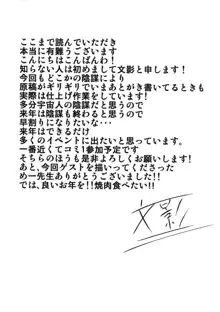 ここまで読んでいただき
本当に有難うございます
こんにちはこんばんわ!
知らない人は初めまして文影と申します!
今回もどこかの陰謀により
原稿がギリギリでいまあとがき書いてるときも
実際は仕上げ作業をしています!
多分宇宙人の陰謀だと思うので
来年は陰謀も終わると思うので
早割りになりたいな・・・
来年はできるだけ
多くのイベントに出たいと思っています。
一番近くてコミ1参加予定です
そちらのほうも是非よろしくお願いします!
あと、今回ゲストを描いってくださった
め一先生ありがとうございました!!
では、良いお年を!!焼肉食べたい!!
文影